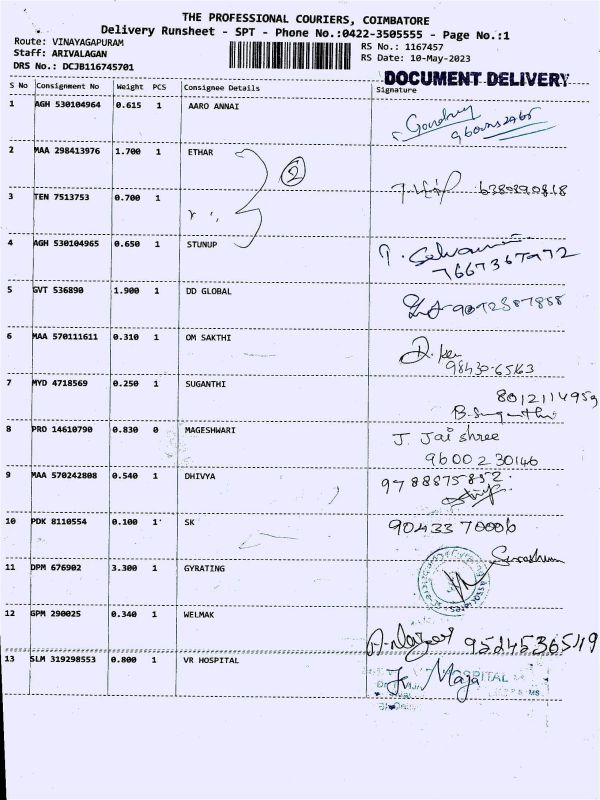 THE PROFESSIONAL COURIERS, COIMBATORE
Delivery Runsheet - SPT - Phone No.:0422-3505555 - Page No.:1
Route: VINAYAGAPURAM
Staff: ARIVALAGAN
DRS No.: DCJB116745701
RS No.: 1167457
RS Date: 10-May-2023
DOCUMENT DELIVERY
S No Consignment No Weight PCS Consignee Details Signature
1 AGH 530104964 0.615 1 AARO ANNAI
2 MAA 298413976 1.700 1 ETHAR
2
3 TEN 7513753 0.700 1
4 AGH 530104965 0.650 1 STUNUP
7667367972
5 GVT 536890 1.900 1 DD GLOBAL
9072387858
6 MAA 570111611 0.310 1 OM SAKTHI
98430-65163
7 MYD 4718569 0.250 1 SUGANTHI
8012114959
B.Suganthi
8 PRO 14610790 0.830 0 MAGESHWARI J. Jai shree
9600230146
9 MAA 570242808 0.540 1 DHIVYA 9788875852
10 PDK 8110554 0.100 1 SK 9043370006
11 DPM 676902 3.300 1 GYRATING
12 GPM 290025 0.340 1 WELMAK
9524536549
13 SLM 319298553 0.800 1 VR HOSPITAL
HOSPITAL
Maja